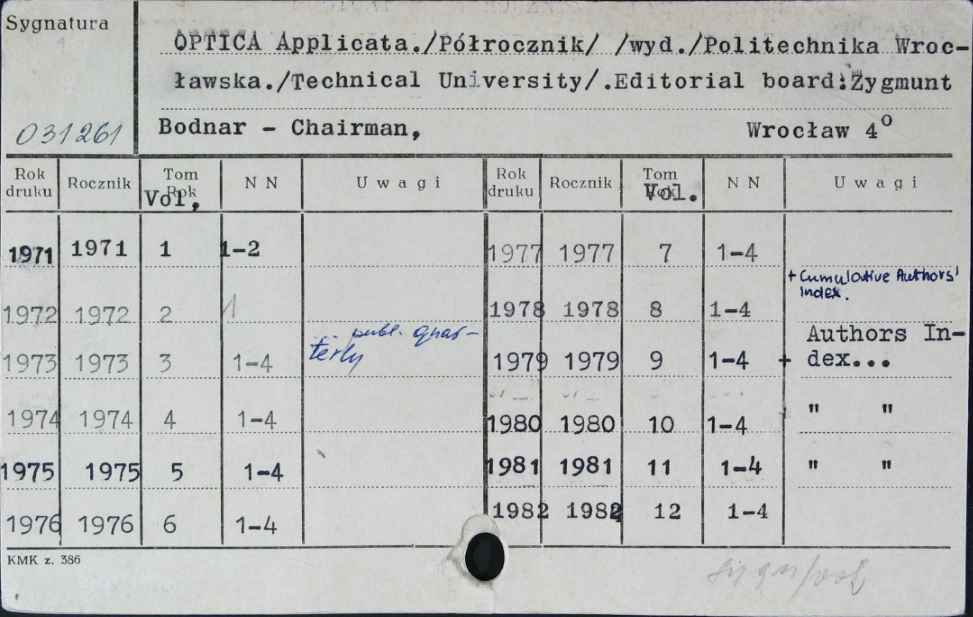 Sygnatura
OPTICA Applicata./Półrocznik/ /wyd./Politechnika Wroc-
ławska./Technical University/.Editorial board:Zygmunt
031261 Bodnar - Chairman, Wrocław 4°
Rok druku Rocznik Tom Rok Vol, N N Uwagi Rok druku Rocznik Tom Rok Vol. N N Uwagi
1971 1971 1 1-2 1977 1977 7 1-4
+ Cumulative Authors'
Index.
1972 1972 2 1 1978 1978 8 1-4
publ. quar-
terly
Authors In-
1973 1973 3 1-4 1979 1979 9 1-4 + dex...
1974 1974 4 1-4 1980 1980 10 1-4 " "
1975 1975 5 1-4 1981 1981 11 1-4 " "
1976 1976 6 1-4 1982 1982 12 1-4
KMK z. 386